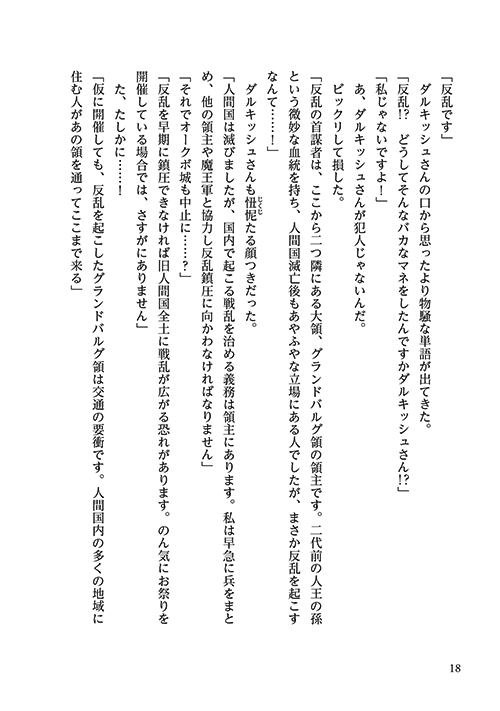 「反乱です」
ダルキッシュさんの口から思ったより物騒な単語が出てきた。
「反乱!?　どうしてそんなバカなマネをしたんですかダルキッシュさん!?」
「私じゃないですよ！」
あ、ダルキッシュさんが犯人じゃないんだ。
ビックリして損した。
「反乱の首謀者は、ここから二つ隣にある大領、グランドバルグ領の領主です。二代前の人王の孫
という微妙な血統を持ち、人間国滅亡後もあやふやな立場にある人でしたが、まさか反乱を起こす
なんて……！」
ダルキッシュさんも忸怩たる顔つきだった。
「人間国は滅びましたが、国内で起こる戦乱を治める義務は領主にあります。私は早急に兵をまと
め、他の領主や魔王軍と協力し反乱鎮圧に向かわなければなりません」
「それでオークボ城も中止に……？」
「反乱を早期に鎮圧できなければ旧人間国全土に戦乱が広がる恐れがあります。のん気にお祭りを
開催している場合では、さすがにありません」
た、たしかに……！
「仮に開催しても、反乱を起こしたグランドバルグ領は交通の要衝です。人間国内の多くの地域に
住む人があの領を通ってここまで来る」
18